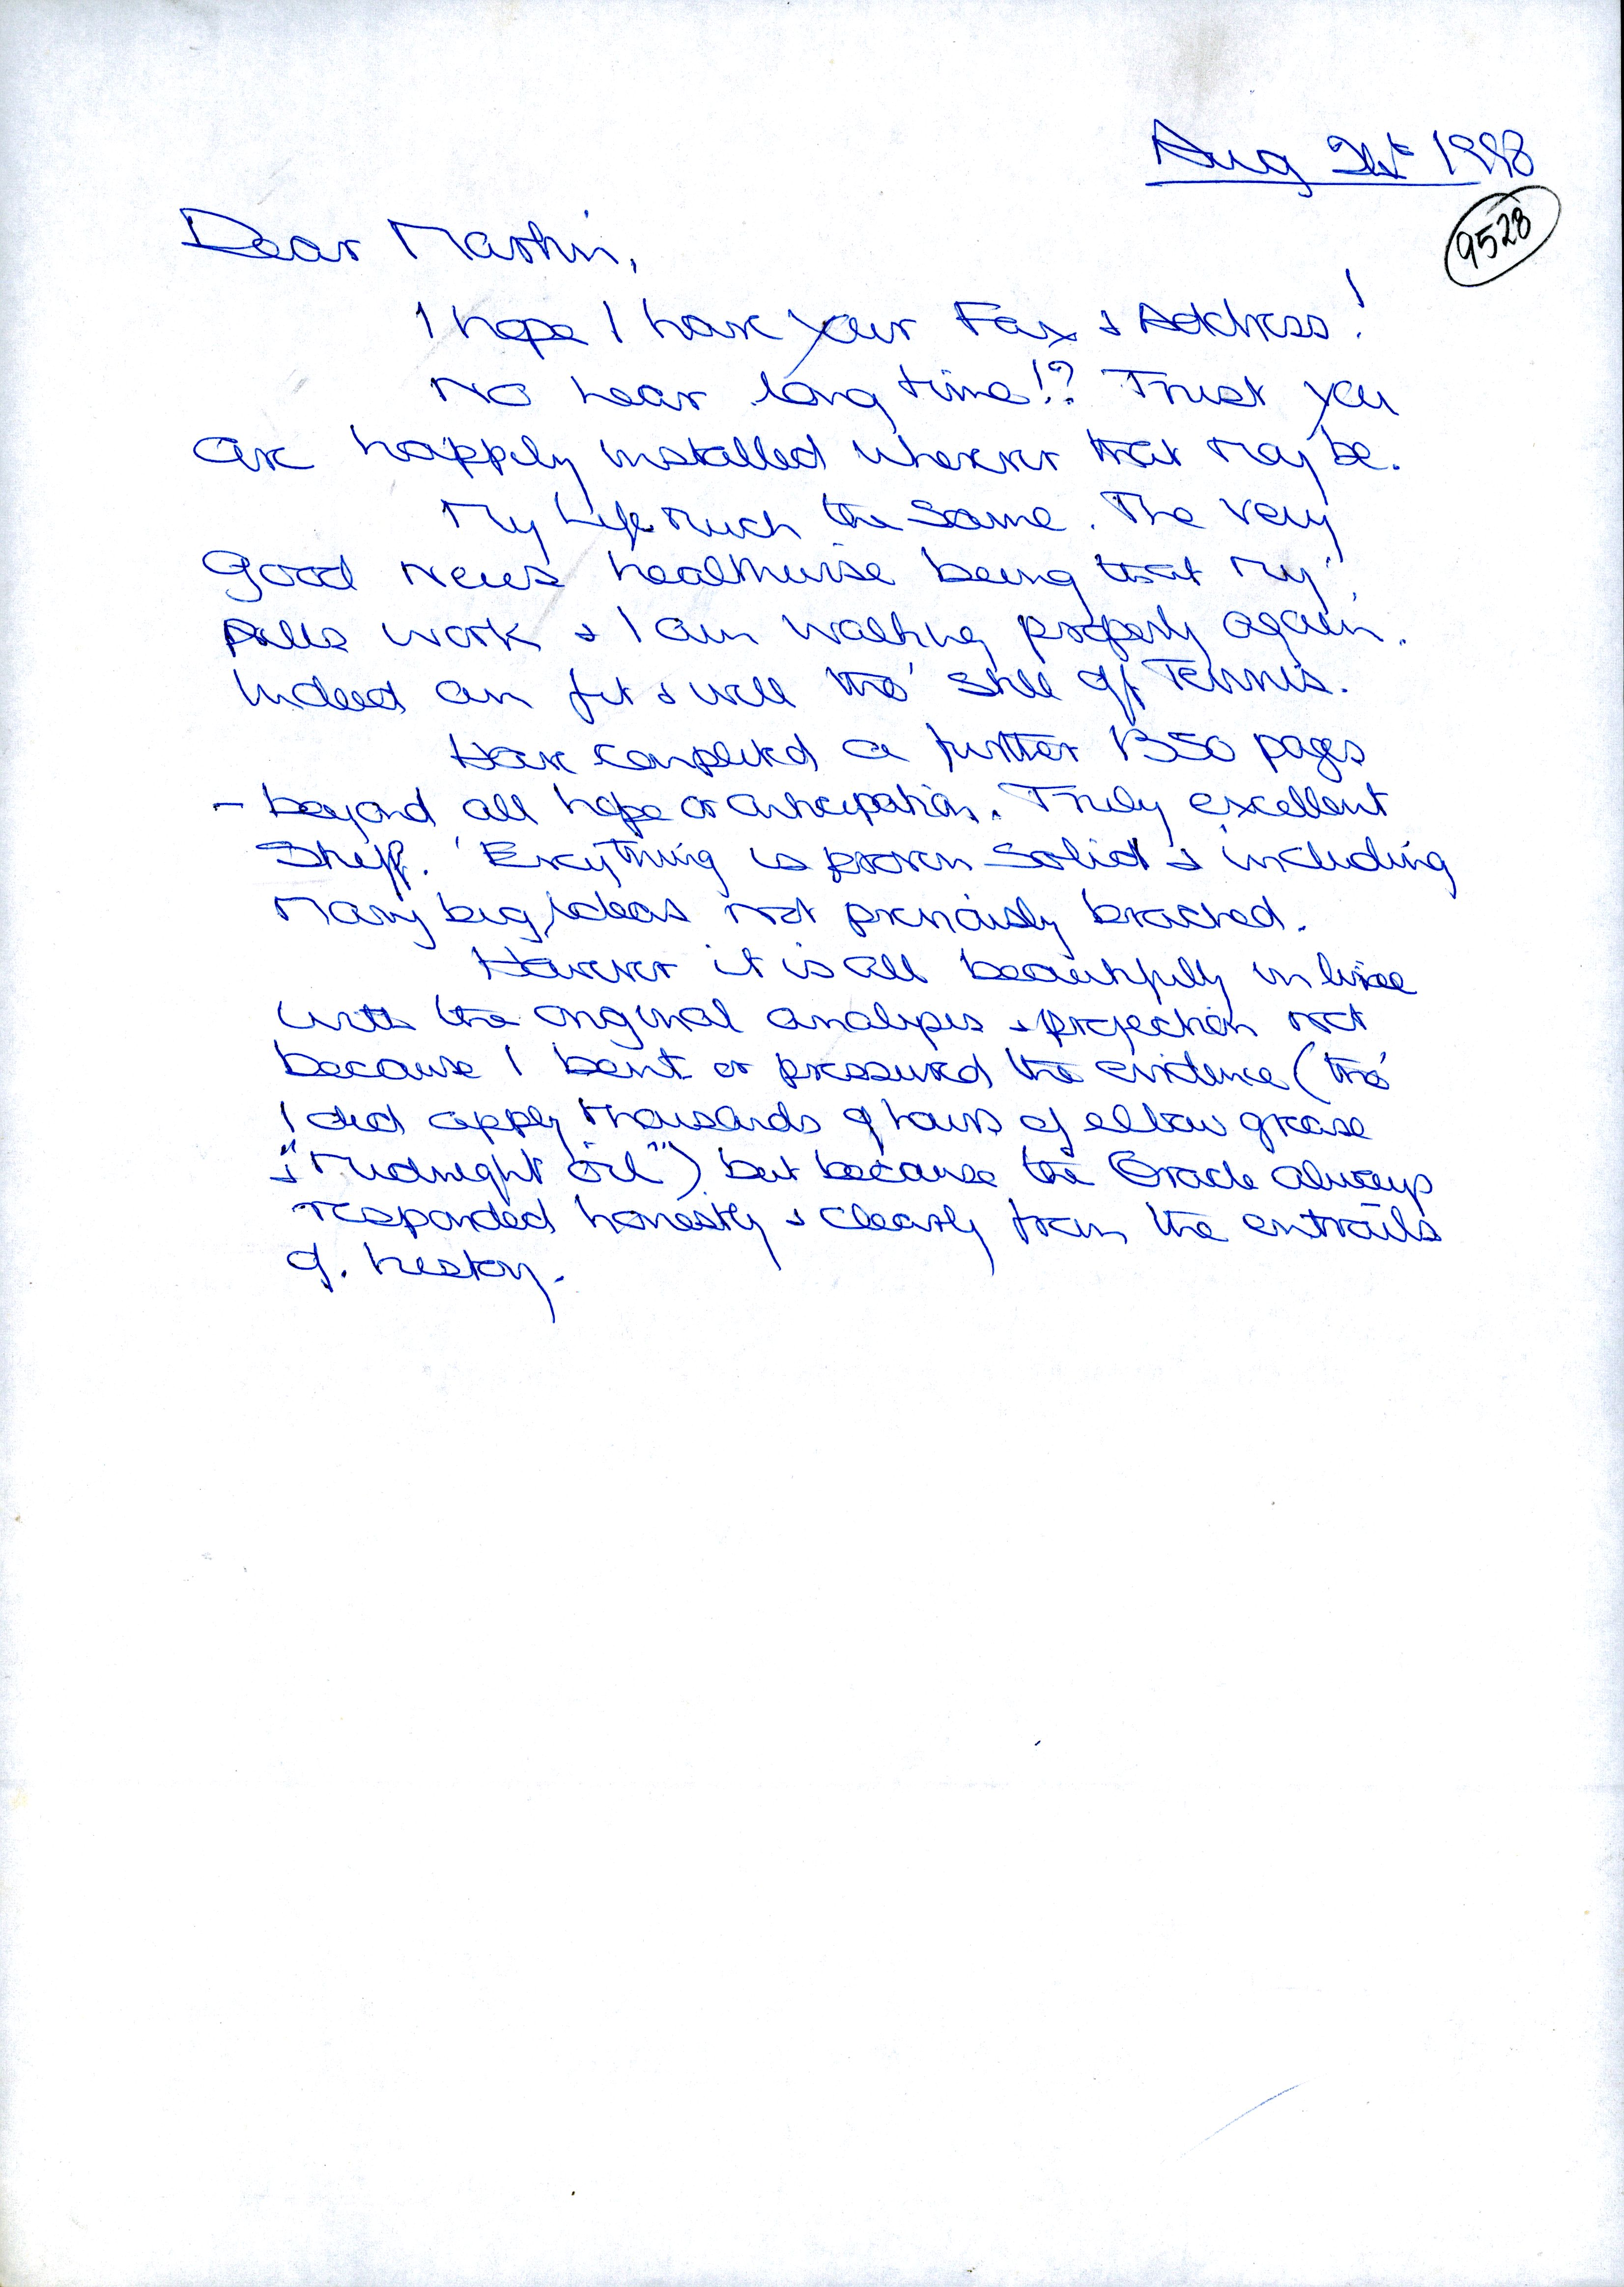 Aug 21st 1998
9528
Dear Martin,
I hope I have your Fax & Address!
No hear long time!? Trust you
are happily installed wherever that may be.
My Life much the same. The very
Good News healthwise being that my
pills work & I am walking properly again.
Indeed am fit & well tho' still off Tennis.
Have completed a further 1350 pages
- beyond all hope or anticipation. Truly excellent
Stuff. Everything is proven solid & including
Many big ideas not previously broached.
However it is all beautifully in line
with the original analysis & projection not
because I bent or pressured the evidence (tho'
I did apply thousands of hours of elbow grease
& "Midnight oil") but because the Oracle always
responded honestly & clearly from the entrails
of history.